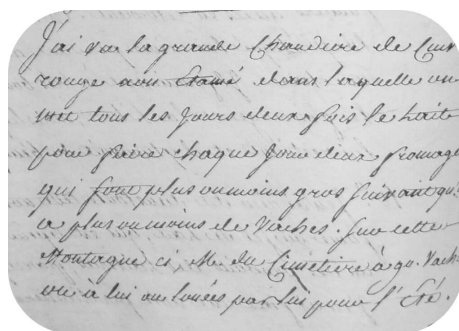 J'ai vu la grande Chaudiere de Cuivre
rouge non Etamé dans laquelle on
met tous les jours deux fois le Lait
pour faire chaque jour deux fromages
qui sont plus ou moins gros suivant qu'il
a plus ou moins de Vaches. sur cette
Montagne ci M. du Cimetiere a 90. Vaches
ou à lui ou louées par lui pour l'Eté.